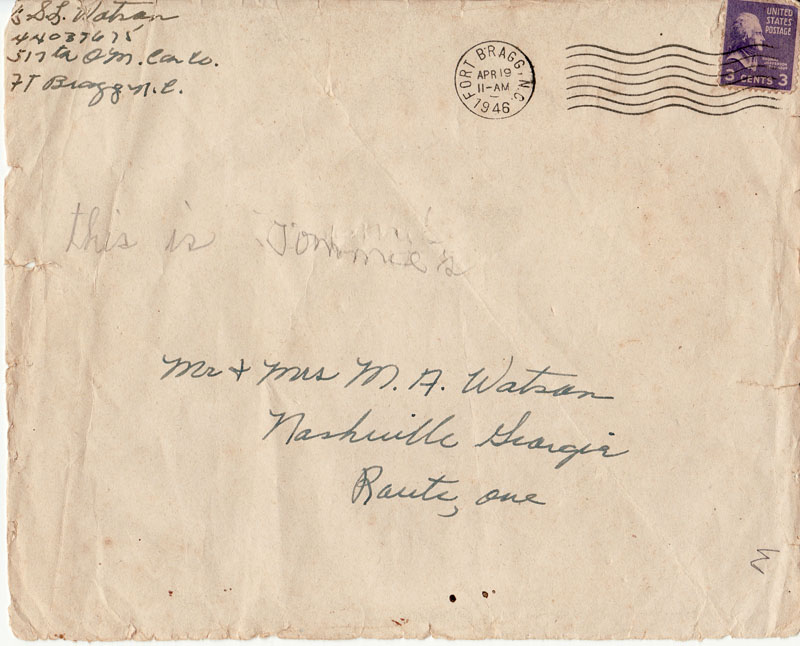 S.L. Watson
44037675
517th Q M. Car Co.
FT Bragg N.C.
FORT BRAGG, N.C.
APR 19
11-AM
1946
UNITED
STATES
POSTAGE
3 CENTS 3
this is Tommie's
Mr & Mrs M. A. Watson
Nashville Georgia
Route, one